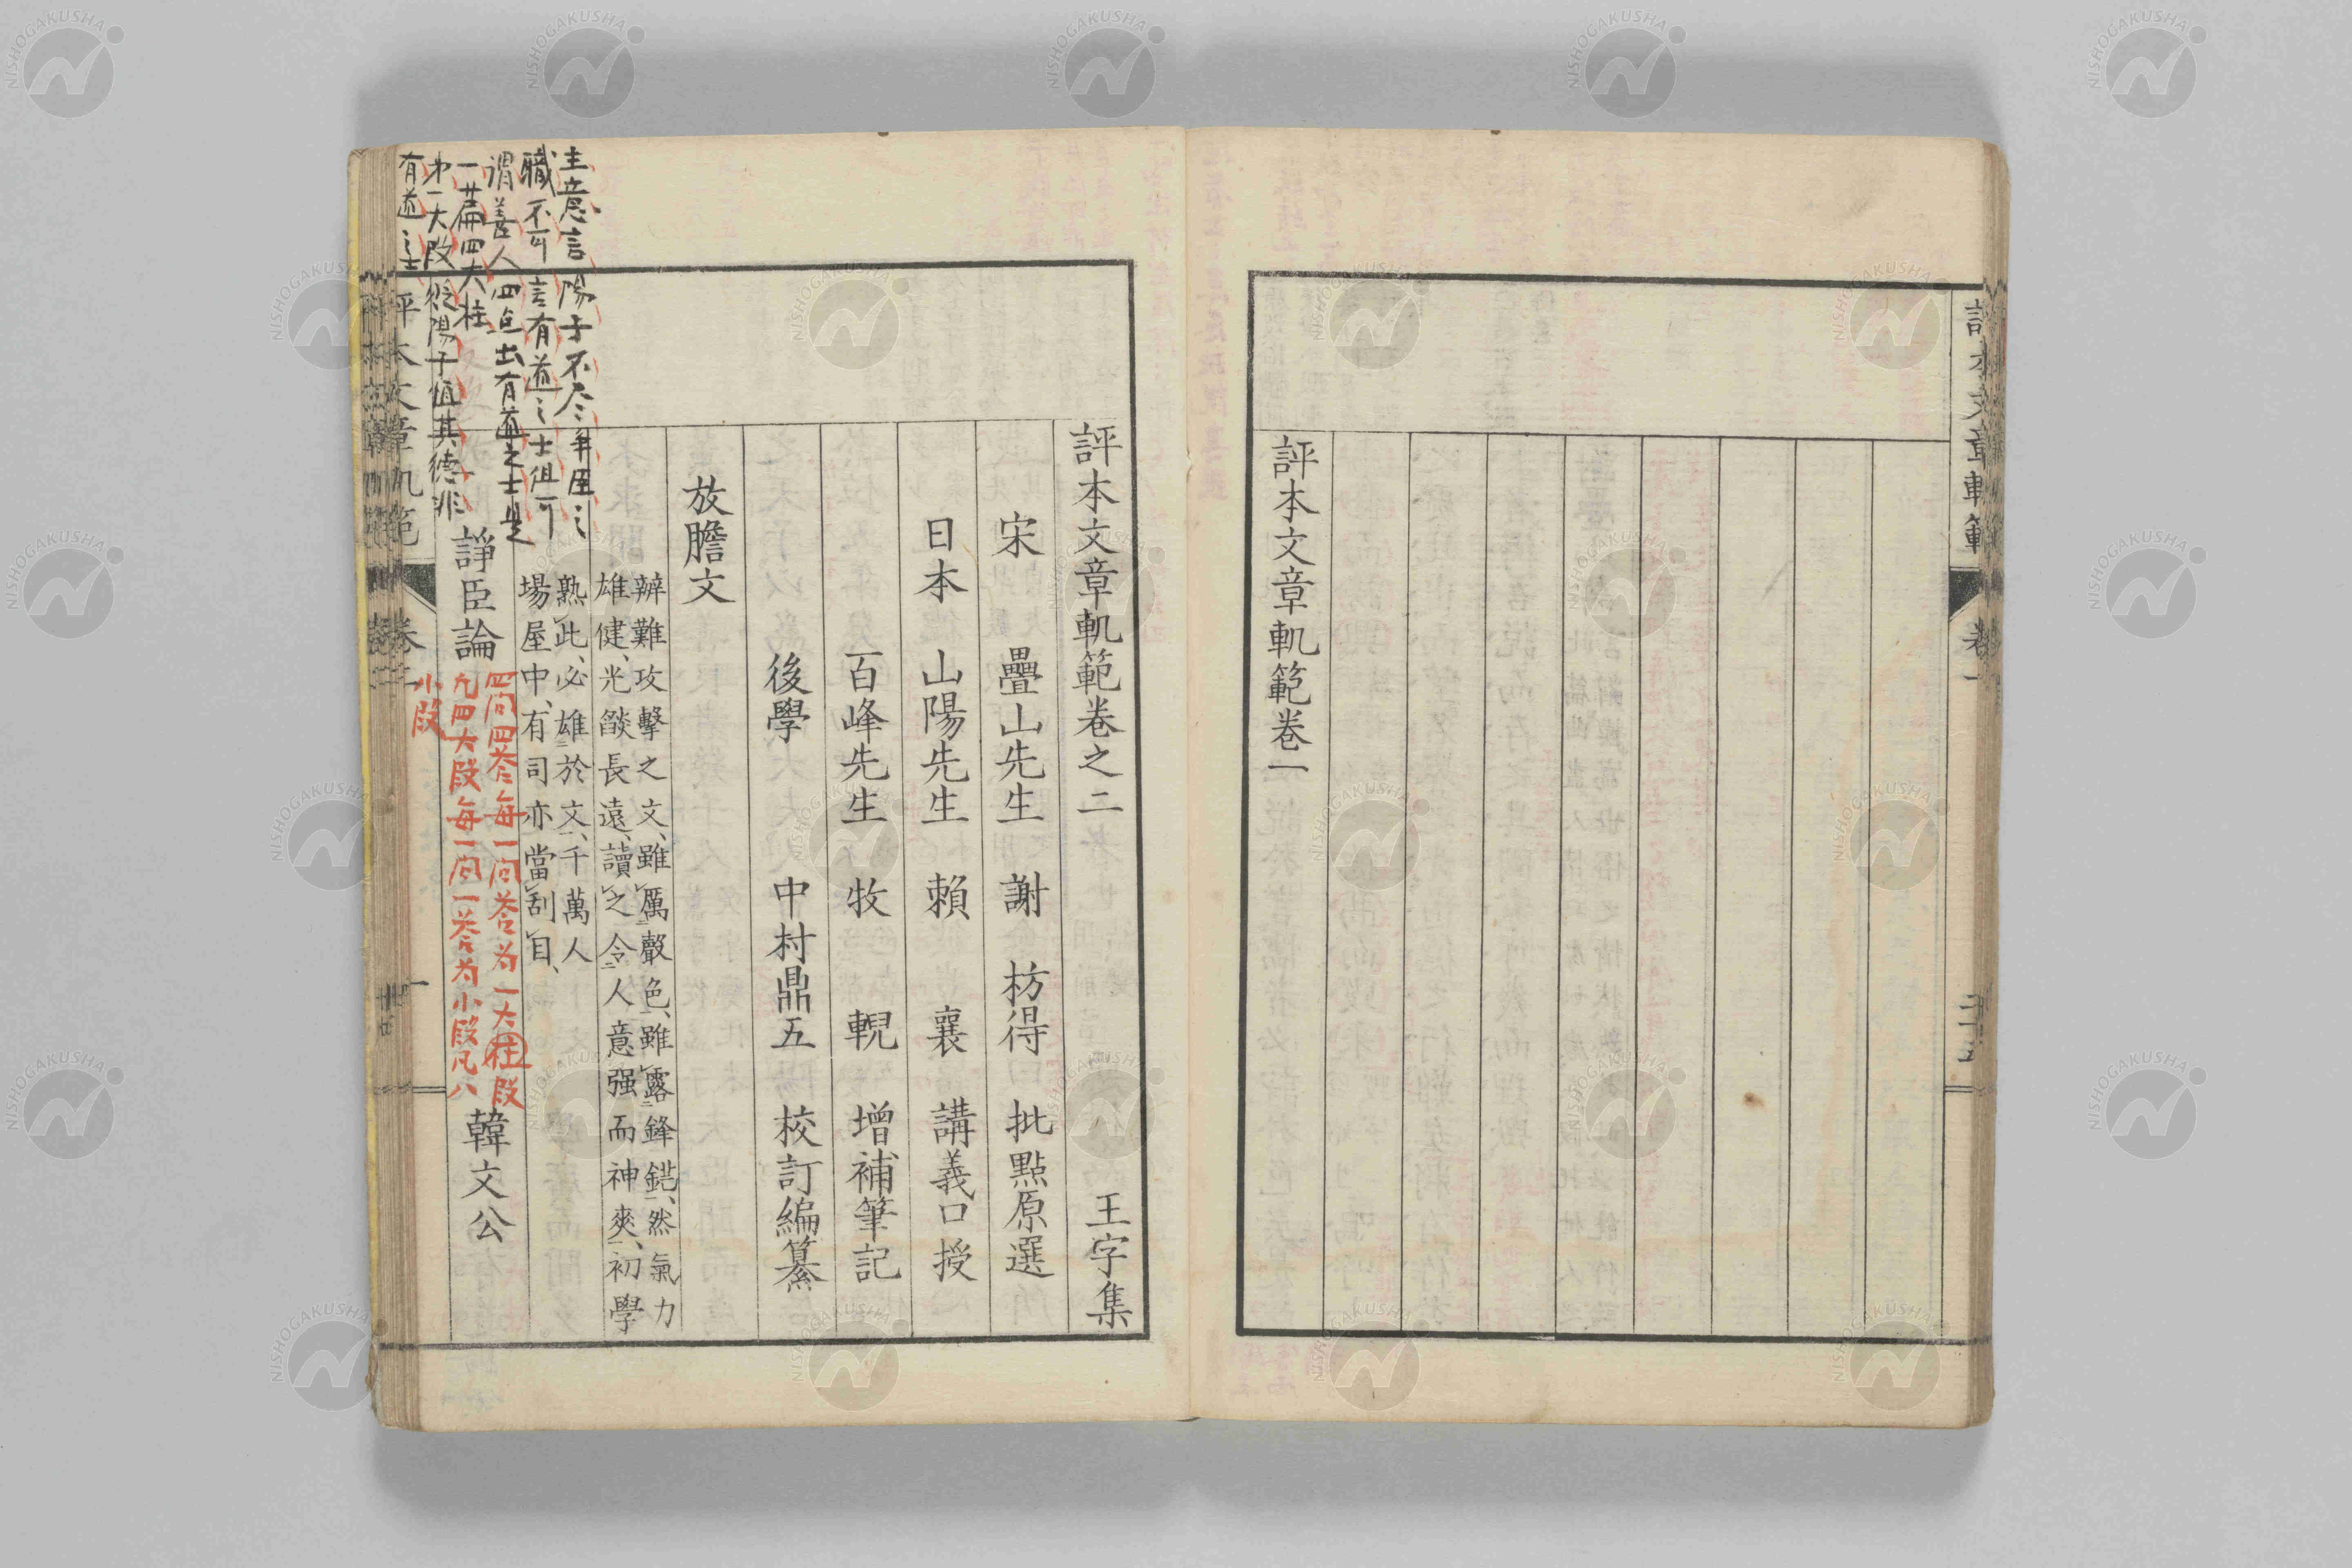 評本文章軌範卷一
評本文章軌範
卷一
評本文章軌範卷之二 王字集
宋 疊山先生 謝 枋得 批點原選
日本 山陽先生 賴 襄 講義口授
百峰先生 牧 輗 增補筆記
後學 中村鼎五 校訂編纂
放膽文
辯難攻擊之文、雖厲聲色、雖露鋒鋩、然氣力
雄健、光燄長遠、讀之令人意强而神爽、初學
熟此、必雄於文、千萬人
場屋中、有司亦當刮目、
諍臣論 韓文公
四问四答每一问答为一大柱段
凡四大段每一问一答为小段凡八
小段
主意言陽子不尽爭臣之
職不可言有道之士但可
謂善人四点出有道之士是
一篇四大柱
才一大段從陽子值其德非
有道之士
評本文章軌範
卷二
一
NISHOGAKUSHA